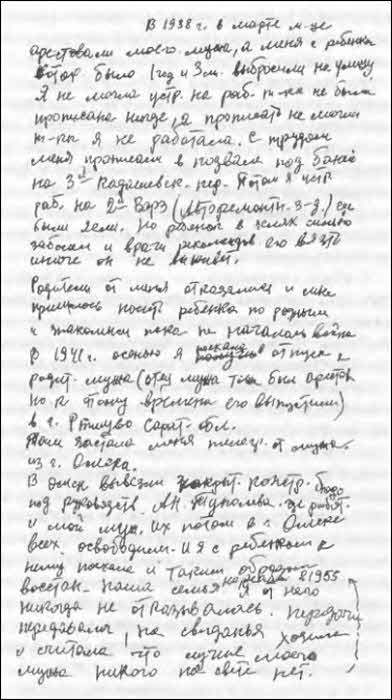 В 1938 г. в марте м-це
арестовали моего мужа, а меня с ребенком
котор. было 1 год и 3 м. выбросили на улицу
Я не могла устр. на раб. т-к не была
прописана нигде, а прописать не могли
т-к я не работала. С трудом
меня прописали в подвале под баней
на 3й Кадашевск. пер. Потом я устр
раб. на 2й ВАРЗ (Авторемонтн. з-д.)
были ясли. Но ребенок в яслях сильно
заболел и врачи рекомендов его взять
иначе он не выживет.
Родители от меня отказались и мне
пришлось носить ребенка по родным
и знакомым пока не началась война
В 1941 г. осенью я поехала в отпуск к
родит. мужа (отец мужа тоже был арестов
но к этому времени его выпустили)
в г. Ртищево Сарат. обл.
Там застала меня телегр. от мужа
из г. Омска.
В Омск вывезли констр. бюро
под руководств. А.Н. Туполева где работ.
и мой муж. Их потом в г. Омске
всех освободили. И я с ребенком к
нему поехала и таким образом
восстан. наша семья. Я от него
никогда не отказывалась. Передачи
передавала, на свиданья ходила
и считала что лучше моего
мужа никого на свете нет.